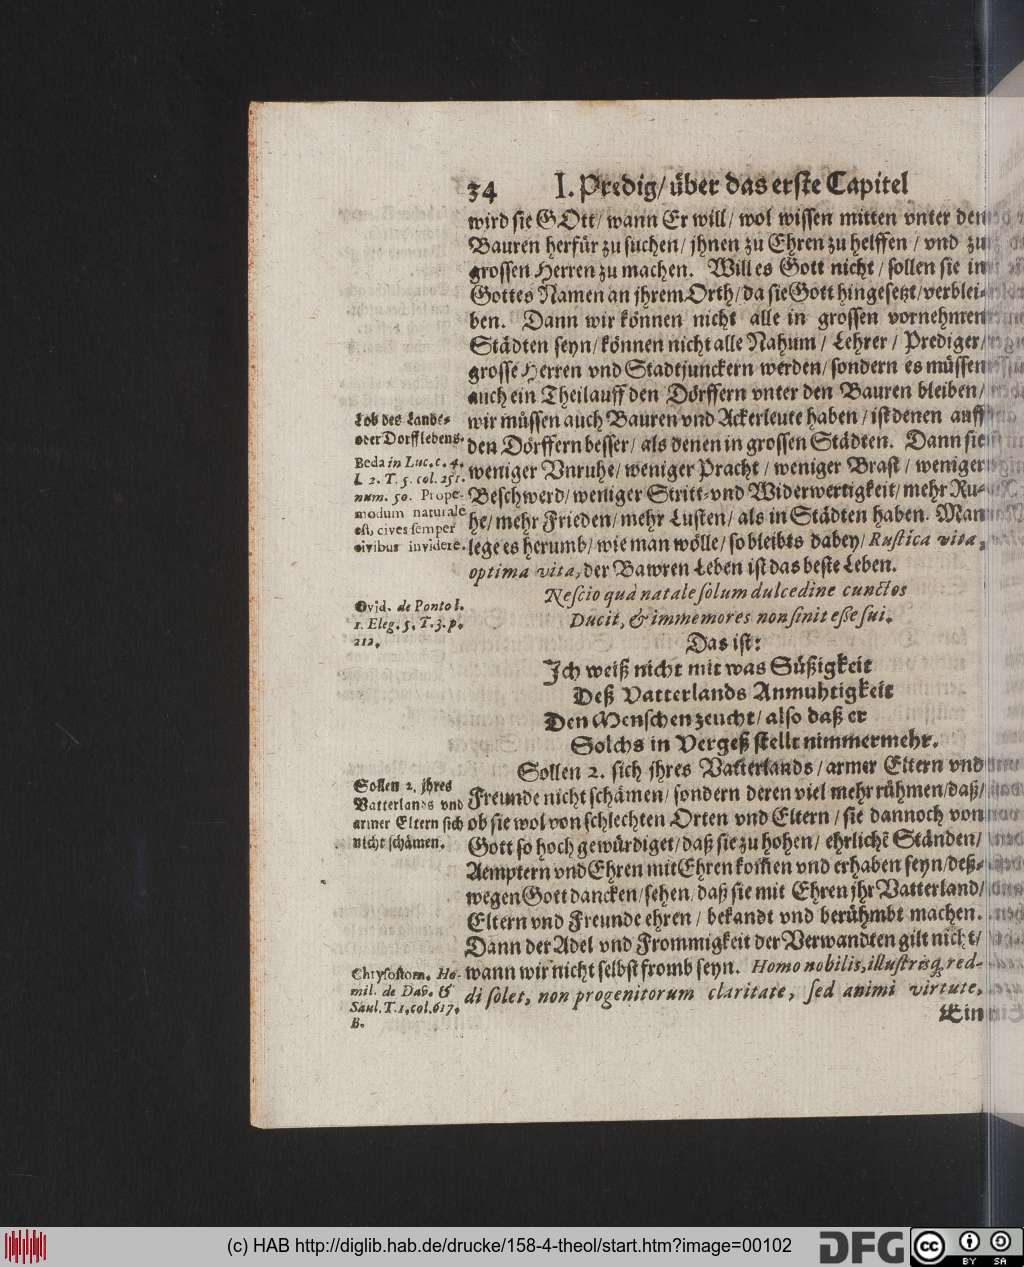 34 I. Predig/ über das erste Capitel
wird sie GOtt/ wann Er will/ wol wissen mitten vnter den
Bauren herfür zu suchen/ jhnen zu Ehren zu helffen / vnd zu
grossen Herren zu machen. Will es Gott nicht / sollen sie in
Gottes Namen an jhrem Orth/ da sie Gott hingesetzt/ verblei-
ben. Dann wir können nicht alle in grossen vornehmen
Städten seyn/ können nicht alle Nahum / Lehrer / Prediger/
grosse Herren vnd Stadtjunckern werden/ sondern es müssen
auch ein Theil auff den Dörffern vnter den Bauren bleiben/
wir müssen auch Bauren vnd Ackerleute haben / ist denen auff
den Dörffern besser/ als denen in grossen Städten. Dann sie
weniger Vnruhe/ weniger Pracht / weniger Brast / weniger
Beschwerd/ weniger Stritt-vnd Widerwertigkeit/ mehr Ru-
he/ mehr Frieden/ mehr Lusten/ als in Städten haben. Man
lege es herumb/ wie man wölle/ so bleibts dabey/ Rustica vita,
optima vita, der Bawren Leben ist das beste Leben.
Nescio quà natale solum dulcedine cunctos
Ducit, & immemores non sinit esse sui.
Das ist:
Ich weiß nicht mit was Süßigkeit
Deß Vatterlands Anmuhtigkeit
Den Menschen zeucht/ also daß er
Solchs in Vergeß stellt nimmermehr.
Sollen 2. sich jhres Vatterlands / armer Eltern vnd
Freunde nicht schämen/ sondern deren viel mehr rühmen/ daß/
ob sie wol von schlechten Orten vnd Eltern / sie dannoch von
Gott so hoch gewürdiget/ daß sie zu hohen/ ehrlichē Ständen/
Aemptern vnd Ehren mit Ehren kom̃en vnd erhaben seyn/ deß-
wegen Gott dancken/ sehen/ daß sie mit Ehren jhr Vatterland/
Eltern vnd Freunde ehren / bekandt vnd berühmbt machen.
Dann der Adel vnd Frommigkeit der Verwandten gilt nicht/
wann wir nicht selbst fromb seyn. Homo nobilis, illustrisq; red-
di solet, non progenitorum claritate, sed animi virtute,
Ein
Lob des Land-
oder Dorfflebens.
Beda in Luc. c. 4.
l. 2. T. 5. col. 251.
num. 50. Prope-
modum naturale
est, cives semper
civibus invidere.
Ovid. de Ponto l.
1. Eleg. 5. T. 3. p.
212.
Sollen 2. jhres
Vatterlands vnd
armer Eltern sich
nicht schämen.
Chrysostom. Ho-
mil. de Dav. &
Saul. T. 1. col. 617.
B.
(c) HAB http://diglib.hab.de/drucke/158-4-theol/start.htm?image=00102
DFG
cc BY SA